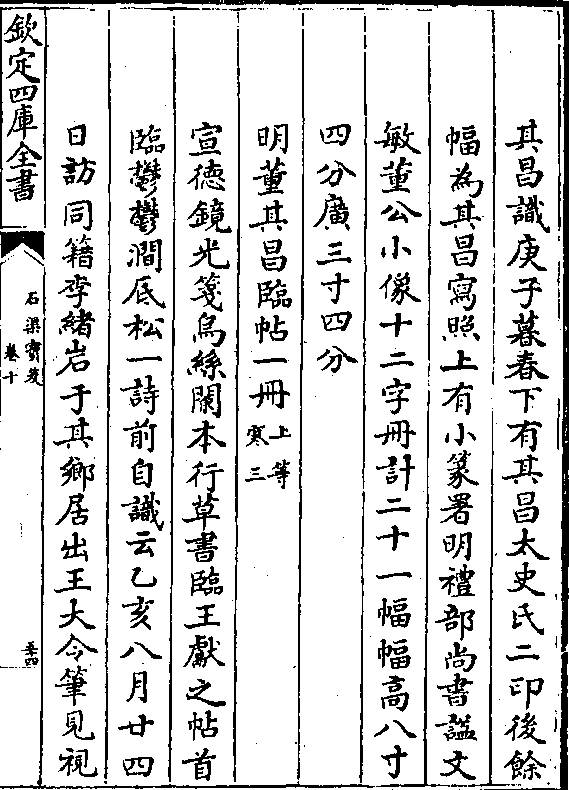 其昌識庚子暮春下有其昌太史氏二印後餘
幅為其昌寫照上有小篆署明禮部尚書諡文
敏董公小像十二字冊計二十一幅幅高八寸
四分廣三寸四分
明董其昌臨帖一冊上等寒三
宣德鏡光箋烏絲闌本行草書臨王獻之帖首
臨鬱鬱澗底松一詩前自識云乙亥八月廿四
日訪同籍李緒岩于其鄉居出王大令筆見視
欽定四庫全書
石渠寶笈
卷十
五十四